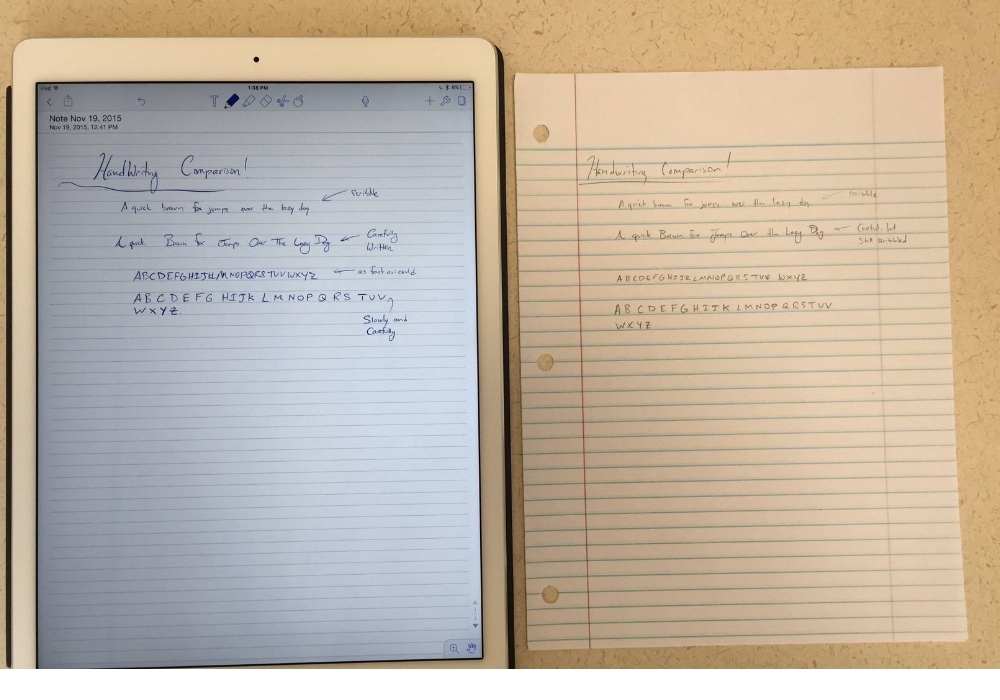 iPad
1:38 PM
6%
T
Note Nov 19, 2015
Nov 19, 2015, 12:41 PM
HandWriting Comparison!
Scribble
A quick brown fox jumps over the lazy dog
A quick Brown Fox Jumps Over The Lazy Dog
Carefully
Written
ABCDEFGHIJKLMNOPQRSTUVWXYZ
as fast as I could
ABCDEFG HIJK LMNOPQRS TUV,
WXYZ
Slowly and
Carefully
Handwriting Comparison!
Scribbled
A quick brown fox jumps over the lazy dog
A quick Brown Fox Jumps Over the Lazy Dog
Careful, but
Still scribbled
ABCDEFGHIJKLMNOPQRSTUV WXYZ
ABCDEFGHIJK LMNOPQRSTUV
WXYZ